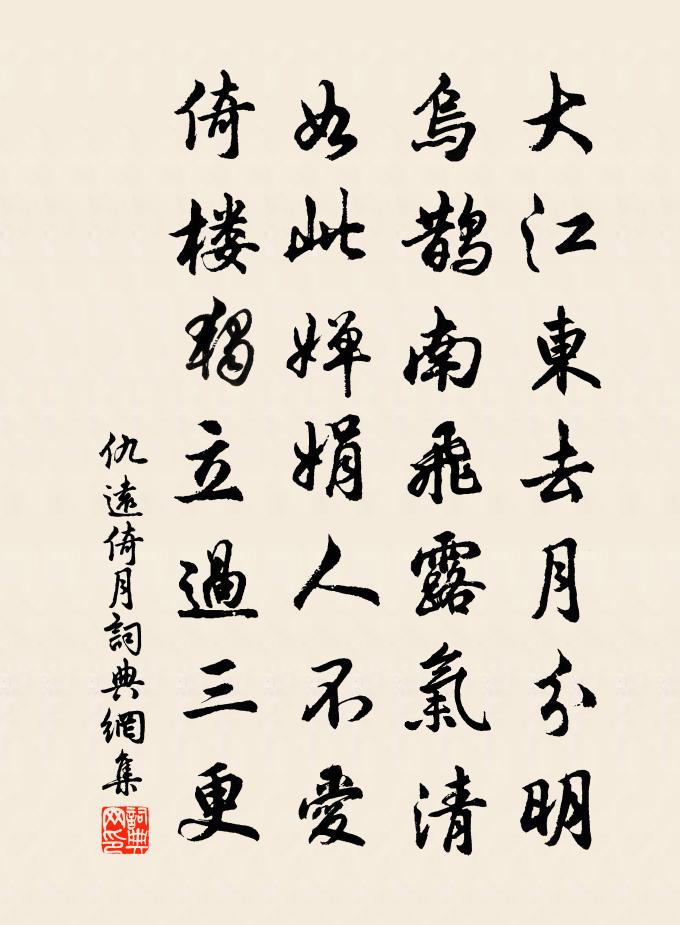 大江東去月分明
烏鵲南飛露氣清
如此嬋娟人不愛
倚楼獨立過三更
仇遠倚月詞典網集
詞典網印